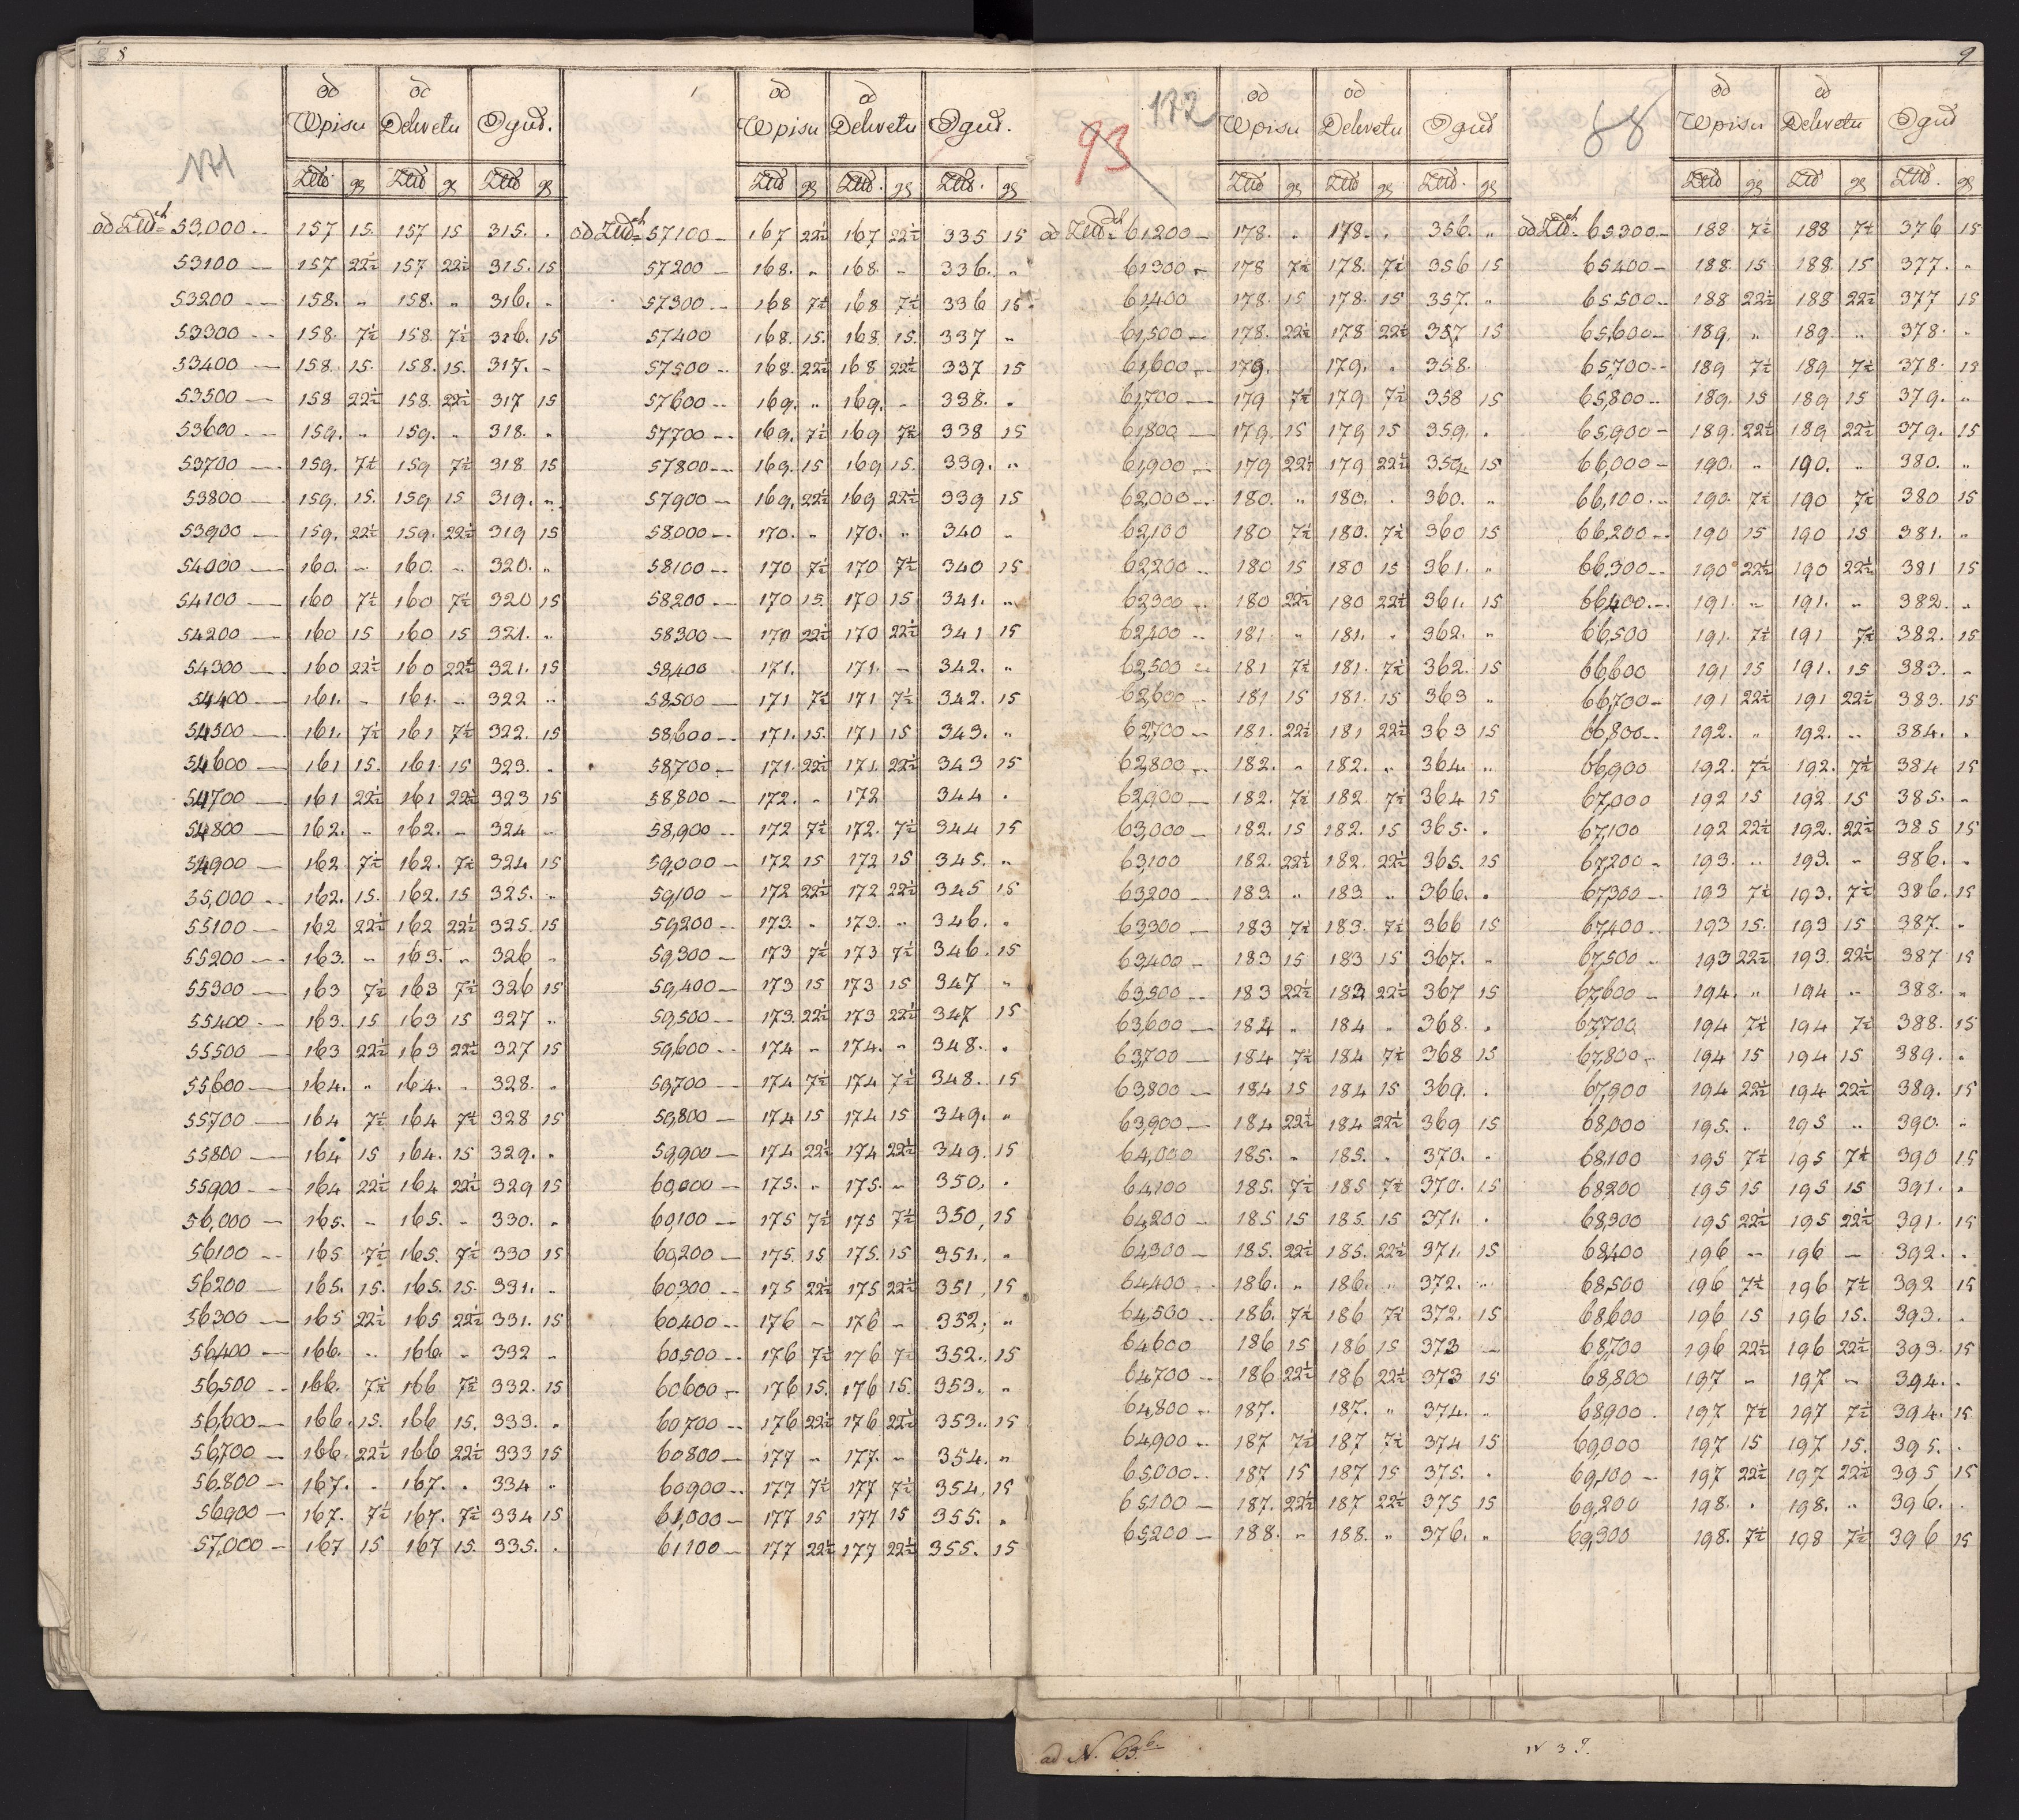 8 8
171
od od
Wpisu Dekretu Oguł.
Złł gr Złł gr Złł gr
od Złłch 53,000 157 15 157 15 315. .
53100 157 22½ 157 22½ 315. 15
53200 158. „ 158. „ 316. „
53300 158. 7½ 158. 7½ 316. 15
53400 158. 15. 158. 15. 317. -
53500 158 22½ 158. 22½ 317 15
53600 159. „ 159. „ 318. „
53700 159. 7½ 159 7½ 318 15
53800 159. 15. 159 15 319. „
53900 159. 22½ 159. 22½ 319 15
54000 160. - 160. - 320. „
54100 160 7½ 160 7½ 320 15
54200 160 15 160 15 321. „
54300 160 22½ 160 22½ 321. 15
54400 161. - 161. - 322 „
54500 161. 7½ 161 7½ 322. 15
54600 161 15. 161. 15 323. „
54700 161 22½ 161 22½ 323 15
54800 162. „ 162. - 324 „
54900 162 7½ 162. 7½ 324 15
55,000 162. 15. 162. 15 325. „
55100 162 22½ 162 22½ 325. 15
55200 163. „ 163. „ 326 „
55300 163 7½ 163 7½ 326 15
55400 163. 15 163 15 327 „
55500 163 22½ 163 22½ 327 15
55600 164. „ 164. „ 328. „
55700 164 7½ 164 7½ 328 15
55800 164 15 164. 15 329. „
55900 164 22½ 164 22½ 329 15
56,000 165. - 165. - 330. „
56100 165 7½ 165. 7½ 330 15
56200 165. 15. 165. 15. 331. „
56300 165 22½ 165 22½ 331. 15
56400 166. „ 166. „ 332 „
56,500 166. 7½ 166 7½ 332. 15
56,600 166. 15. 166 15. 333. „
56,700 166. 22½ 166 22½ 333 15
56.800 167. - 167. „ 334 „
56900 167. 7½ 167. 7½ 334 15
57,000 167 15 167 15. 335. .
od od
Wpisu Dekretu Oguł.
Złł gr Złł. gr Złł. gr
od Złłch 57100 167 22½ 167 22½ 335 15
57200 168. „ 168. - 336. „
57300 168 7½ 168 7½ 336 15.
57400 168. 15. 168. 15. 337 „
57500 168. 22½ 168 22½ 337 15
57600 169. „ 169. - 338. „
57700 169. 7½ 169 7½ 338 15
57800 169. 15 169 15. 339. „
57900 169. 22½ 169 22½ 339 15
58000 170. „ 170. „ 340 „
58100 170 7½ 170 7½ 340 15
58200 170 15. 170 15 341. „
58300 170 22½ 170 22½ 341 15
58,400 171. 171. - 342. „
58500 171 7½ 171 7½ 342. 15
58,600 171. 15. 171 15 343. „
58,700 171. 22½ 171. 22½ 343 15
58,800 172. „ 172 344 .
58,900 172 7½ 172. 7½ 344 15
59,000 172 15 172 15 345. „
59,100 172 22½ 172 22½ 345 15
59,200 173. „ 173. „ 346. „
59,300 173 7½ 173 7½ 346. 15
59,400 173 15 173 15 347 „
59,500 173. 22½ 173 22½ 347 15
59,600 174 „ 174. „ 348. .
59,700 174 7½ 174 7½ 348. 15
59,800 174 15 174 15 349. „
59,900 174 22½ 174 22½ 349. 15
60,000 175. „ 175. „ 350. .
60,100 175 7½ 175 7½ 350, 15
60,200 175. 15 175. 15 351. „
60,300 175 22½ 175 22½ 351, 15
60,400 176 - 176 - 352; „
60,500 176 7½ 176 7½ 352. 15
60,600 176 15. 176 15. 353. „
60700 176 22½ 176 22½ 353. 15
60800 177 „ 177. „ 354. „
60900 177 7½ 177 7½ 354. 15
61,000 177 15 177 15 355. „
61100 177 22½ 177 22½ 355. 15
9
93 172
od od
Wpisu Dekretu Oguł
Złł gr Złł gr Złł. gr
od Złłch 61200 178. „ 178. „ 356. „
61300 178 7½ 178. 7½ 356 15
61,400 178. 15 178. 15 357. „
61,500 178. 22½ 178 22½ 357 15
61,600 179. 179. „ 358.
61,700 179 7½ 179 7½ 358 15
61,800 179. 15 179 15 359. .
61,900 179 22½ 179 22½ 359. 15
62,000 180. „ 180. . 360. „
62,100 180 7½ 180. 7½ 360 15
62,200 180 15 180 15 361. „
62,300 180 22½ 180 22½ 361. 15
62,400 181 „ 181. „ 362. „
62,500 181 7½ 181. 7½ 362. 15
62,600 181 15 181. 15 363 „
62,700 181. 22½ 181 22½ 363 15
62,800 182. „ 182. „ 364. „
62,900 182. 7½ 182 7½ 364 15
63,000 182. 15 182. 15 365. .
63,100 182. 22½ 182. 22½ 365. 15
63,200 183. „ 183. „ 366. „
63,300 183 7½ 183. 7½ 366 15
63,400 183 15 183 15 367. „
63,500 183 22½ 183 22½ 367 15
63,600 184 „ 184 „ 368. „
63,700 184 7½ 184 7½ 368 15
63,800 184 15 184 15 369. .
63,900 184 22½ 184 22½ 369 15
64,000 185. „ 185. „ 370. „
64,100 185. 7½ 185 7½ 370. 15
64,200 185 15 185. 15 371. .
64,300 185. 22½ 185. 22½ 371. 15
64,400 186. „ 186. „ 372. „
64,500 186. 7½ 186 7½ 372. 15
64600 186 15 186 15 373 „
64,700 186 22½ 186 22½ 373 15
64,800 187. 187. „ 374. „
64,900 187 7½ 187 7½ 374 15
65,000 187 15 187 15 375. .
65100 187. 22½ 187 22½ 375 15
65,200 188. „ 188. „ 376. „
88
od od
Wpisu Dekretu Oguł
Złł gr Złł gr Złł. gr
od Złłch 65300 188 7½ 188 7½ 376 15
65400 188. 15 188. 15 377. „
65500 188 22½ 188 22½ 377 15
65,600 189. „ 189. „ 378. „
65,700 189 7½ 189 7½ 378. 15
65,800 189. 15 189 15 379. „
65,900 189. 22½ 189 22½ 379. 15
66,000 190. „ 190. „ 380. „
66,100 190. 7½ 190 7½ 380 15
66,200 190 15 190 15 381. „
66,300 190 22½ 190 22½ 381 15
66,400 191. „ 191. „ 382. „
66,500 191. 7½ 191 7½ 382. 15
66,600 191 15 191. 15 383. „
66,700 191 22½ 191 22½ 383. 15
66,800 192. „ 192. „ 384. „
66,900 192. 7½ 192. 7½ 384 15
67,000 192 15 192 15 385. „
67,100 192 22½ 192. 22½ 385 15
67,200 193. „ 193. „ 386. „
67,300 193 7½ 193. 7½ 386. 15
67,400 193 15. 193 15 387. „
67,500 193 22½ 193. 22½ 387 15
67,600 194. „ 194 „ 388. „
67,700 194 7½ 194 7½ 388. 15
67,800 194 15 194 15 389. „
67,900 194 22½ 194 22½ 389. 15
68,000 195. „ 195 „ 390. „
68,100 195 7½ 195 7½ 390 15
68200 195 15 195 15 391. „
68,300 195 22½ 195 22½ 391. 15
68,400 196 „ 196 - 392. „
68,500 196 7½ 196 7½ 392 15
68,600 196 15 196 15. 393. .
68,700 196 22½ 196 22½ 393. 15
68,800 197 „ 197 „ 394. „
68900 197 7½ 197 7½ 394. 15
69,000 197 15 197 15. 395. .
69,100 197 22½ 197 22½ 395 15
69,200 198. „ 198. „ 396. .
69,300 198. 7½ 198 7½ 396 15
ad N. 63 b.